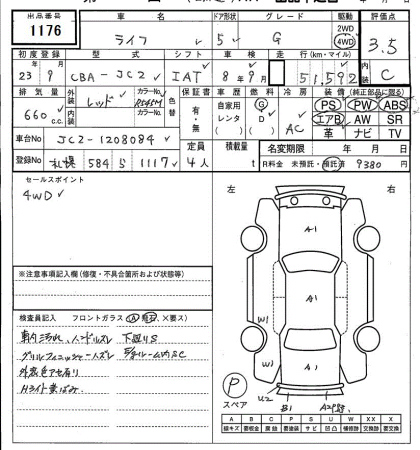 出品番号 車名 ドア形状 グレード 駆動 評価点
1176 ライフ 5 G 2WD 4WD 3.5
初度登録 型式 シフト 車検 走行(km・マイル) 内装
23年9月 CBA-JC2 IAT 8年9月 51,592 C
排気量 外装 レッド カラーNo. 色替 保証書 車歴 燃料 冷房 装備(純正部品に限る)
660 c.c. 内装 カラーNo. 有・無 自家用 レンタ G D AC PS PW ABS
エアB AW SR
革 ナビ TV
車台No JC2-1208084 定員 積載量 名変期限 年 月 日
登録No 札幌 584 5 1117 4人 t R料金 未預託・預託済 9380円
セールスポイント
4WD
左 右
※注意事項記入欄(修復・不具合箇所および状態等)
検査員記入 フロントガラス(A 飛石 X要ス)
車内汚れ、ハンドルスレ 下廻りS
外装色アセ有り
Hライト黄ばみ
A1
A1
A1
W1
W1
U2
B1
P
スペア
A B C P S U W X XX X
線キズ 要板金 腐食 要塗装 サビ 凹凸 補修跡 交換跡 要交換